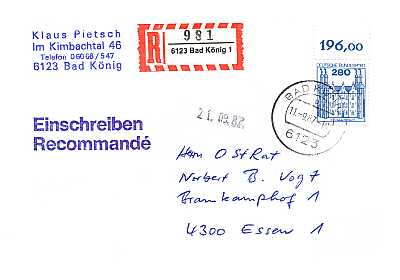 Klaus Pietsch
Im Kimbachtal 46
Telefon 06066/547
6123 Bad König
R
981
6123 Bad König 1
196,00
DEUTSCHE BUNDESPOST
280
BAD
6123
21. 09. 82.
Einschreiben
Recommandé
Herrn OStRat
Norbert B. Vogt
Bramkamphof 1
4300 Essen 1